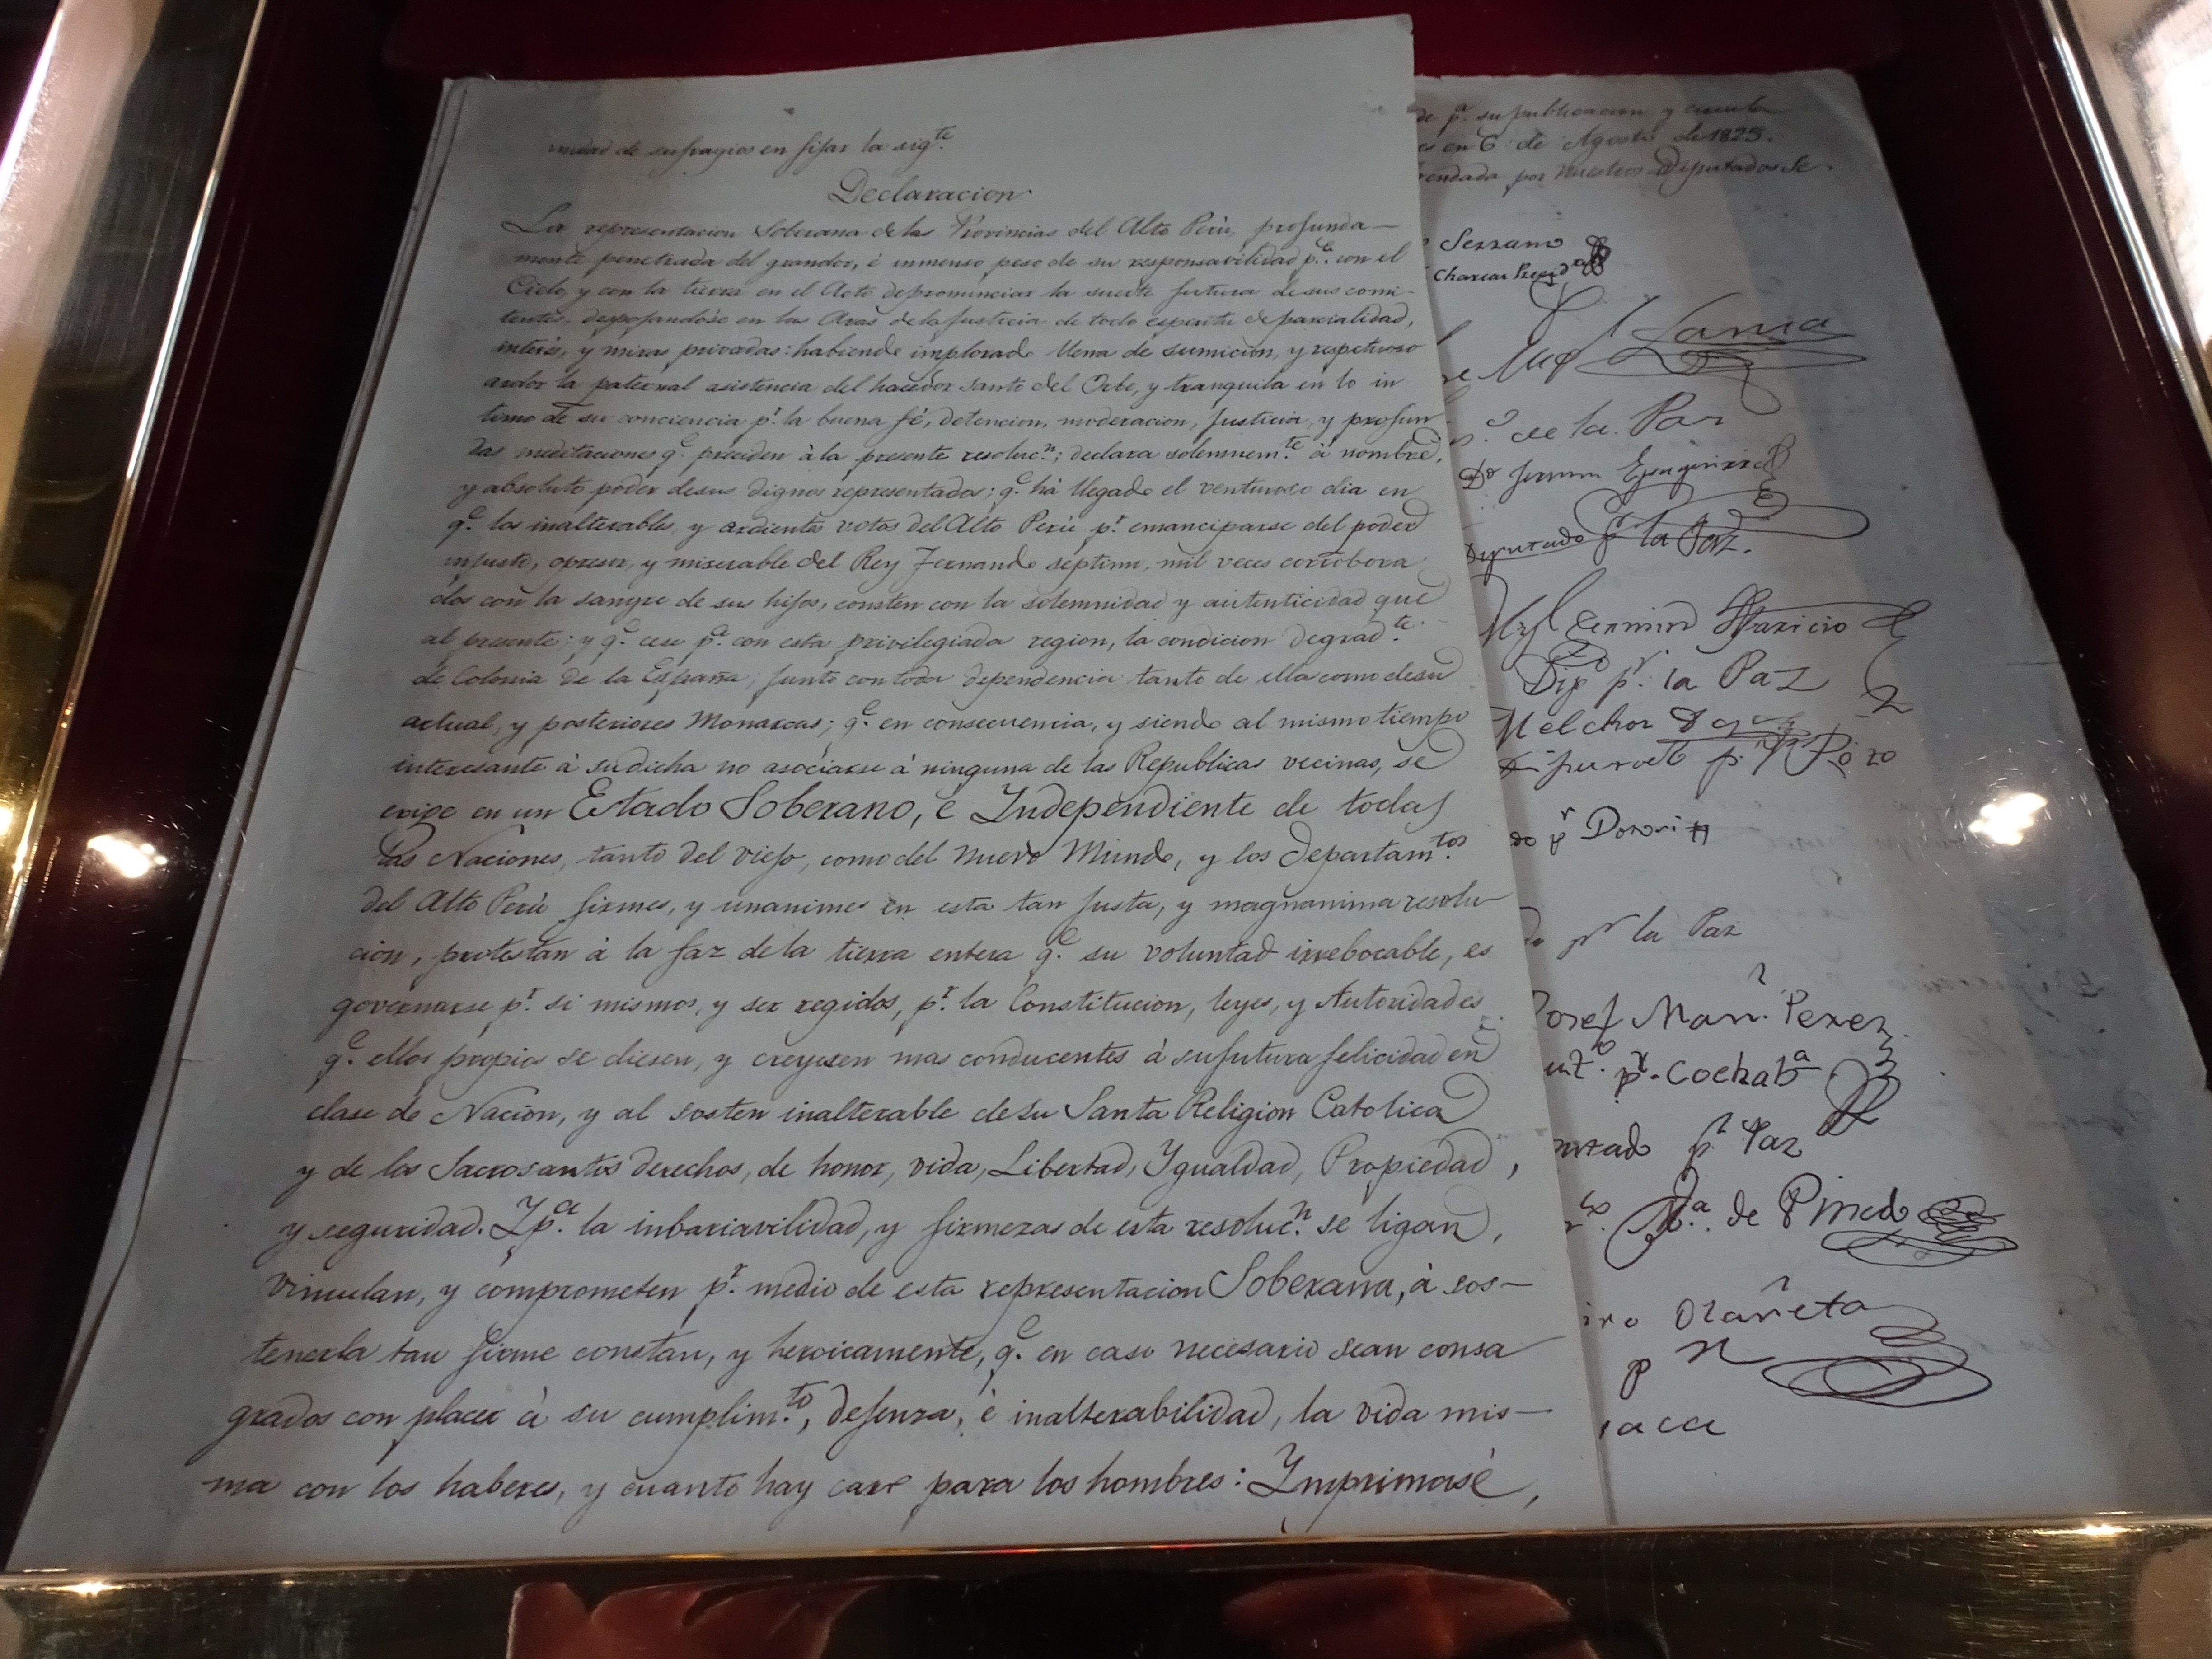 midad de sufragios en fijar la sig.te
Declaracion
La representacion Soberana de las Provincias del Alto Perú, profunda-
mente penetrada del grandor, é inmenso peso de su responsavilidad p.a con el
Cielo, y con la tierra en el Acto de pronunciar la suerte futura de sus comi-
tentes, despojandóse en las Aras de la Justicia de todo espiritu de parcialidad,
interés, y miras privadas: habiendo implorado llena de sumicion, y respetuoso
ardor la paternal asistencia del hacedor Santo del Orbe, y tranquila en lo in
timo de su conciencia p.r la buena fé, detencion, moderacion, Justicia, y profun-
das meditaciones q.e preciden à la presente resoluc.n; declara solemnem.te à nombre,
y absoluto poder de sus dignos representados; q.e há llegado el venturoso dia en
q.e los inalterables, y ardientes votos del Alto Perú p.r emanciparse del poder
injusto, opresor, y miserable del Rey Fernando septimo, mil veces corrobora
dos con la sangre de sus hijos, consten con la solemnidad y autenticidad que
al presente; y q.e cese p.a con esta privilegiada region, la condicion degrad.te
de Colonia de la España, junto con toda dependencia tanto de ella como de su
actual, y posteriores Monarcas; q.e en consecuencia, y siendo al mismo tiempo
interesante à su dicha no asociarse à ninguna de las Republicas vecinas, se
erige en un Estado Soberano, é Independiente de todas
las Naciones, tanto del viejo, como del Nuevo Mundo, y los Departam.tos
del Alto Perú firmes, y unanimes en esta tan justa, y magnanima resolu
cion, protestan à la faz de la tierra entera q.e su voluntad irrebocable, es
governarse p.r si mismos, y ser regidos, p.r la Constitucion, leyes, y Autoridades
q.e ellos propios se diesen, y creyesen mas conducentes à su futura felicidad en
clase de Nacion, y al sosten inalterable de su Santa Religion Catolica
y de los Sacrosantos derechos, de honor, vida, Libertad, Ygualdad, Propiedad,
y seguridad. Y p.a la inbariavilidad, y firmeza de esta resoluc.n se ligan,
vinculan, y comprometen p.r medio de esta representacion Soberana, à sos-
tenerla tan firme constan, y heroicamente, q.e en caso necesario sean consa
grados con placer à su cumplim.to, defenza, é inalterabilidad, la vida mis-
ma con los haberes, y cuanto hay caro para los hombres: Ymprimasé,
de p.a su publicacion, y circula
es en 6 de Agosto de 1825.
rendada por Nuestros Diputados Se
Serrano
Charcas Presid
Lanza
de la Paz
Fermin Eysaguirre
Diputado p.r la Paz.
Fermin Aparicio
Dip p.r la Paz
Melchor
do p.r Potosi
do p.r la Paz
Josef Man.l Perez
p.r Cochab.a
utado p.r Paz
M.a de Pinedo
iro Olañeta
p r